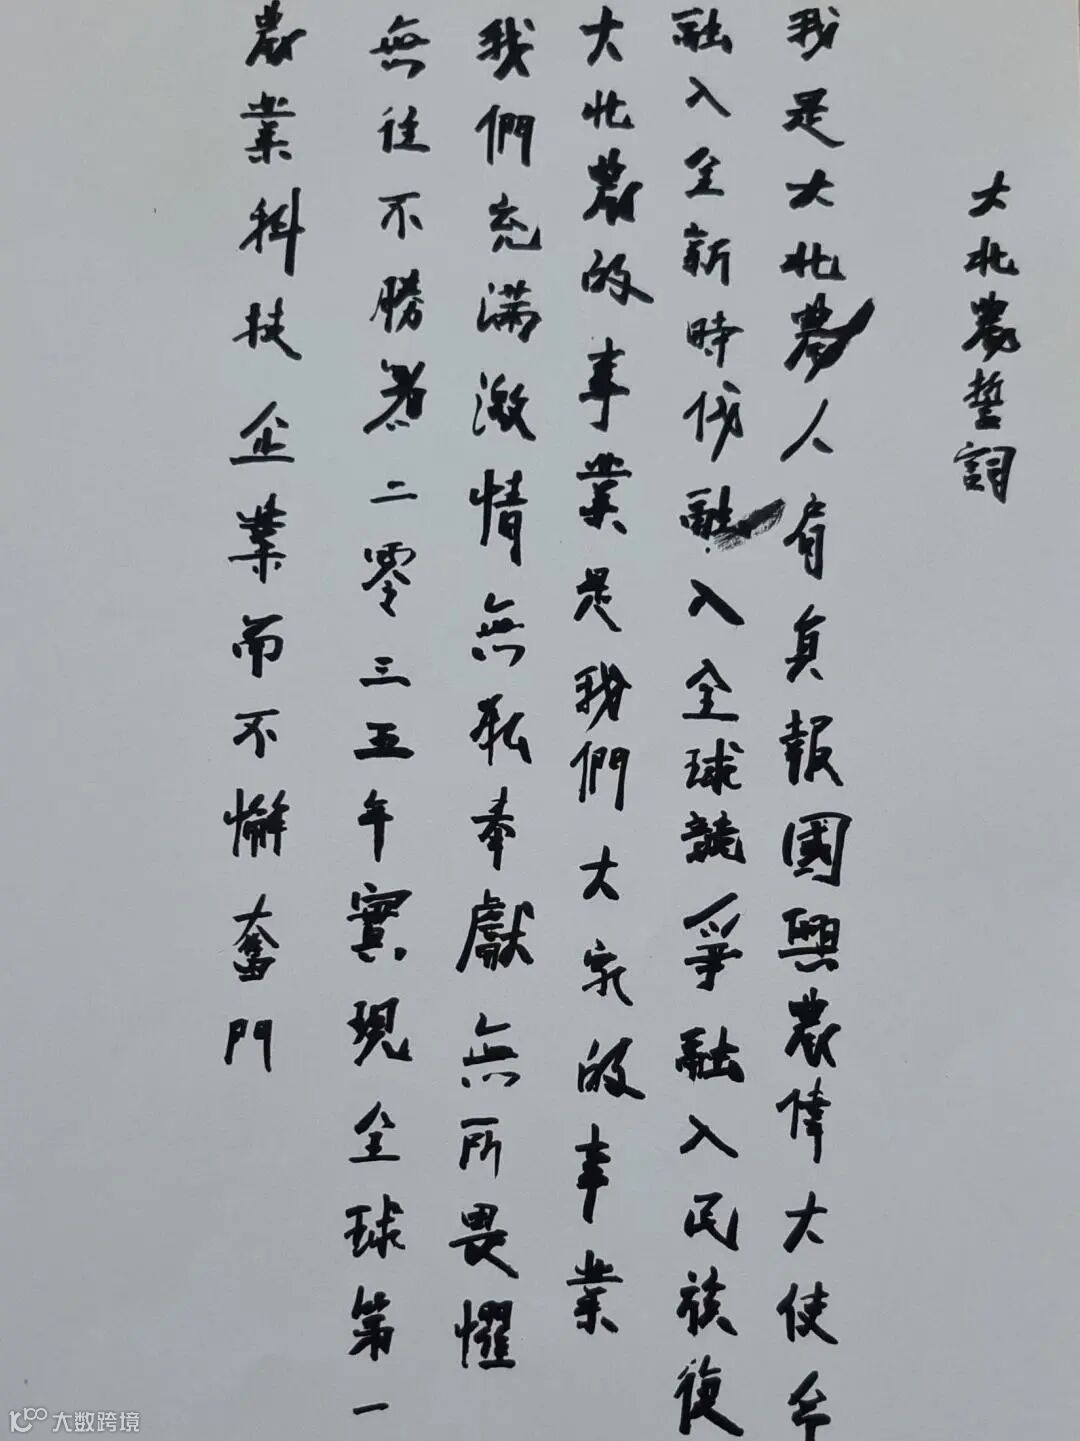 大北農誓詞
我是大北農人肩負報國興農偉大使命
融入全新時代融入全球競爭融入民族復
大北農的事業是我們大家的事業
我們充滿激情無私奉獻無所畏懼
無往不勝為二零三五年實現全球第一
農業科技企業而不懈奮鬥
大数跨境